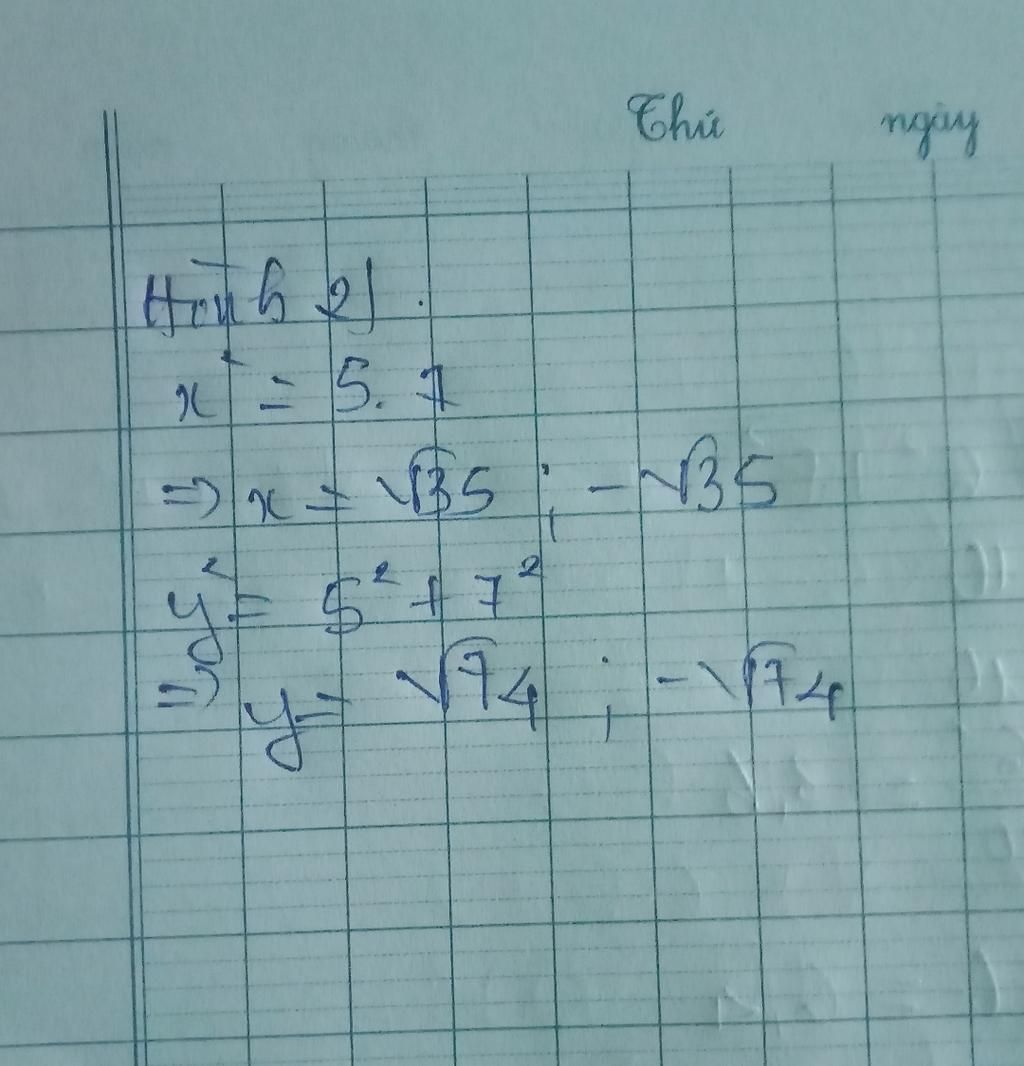 Thứ ngày
Hình 2)
x² = 5.7
=> x = √35 ; -√35
y² = 5² + 7²
=> y = √74 ; -√74